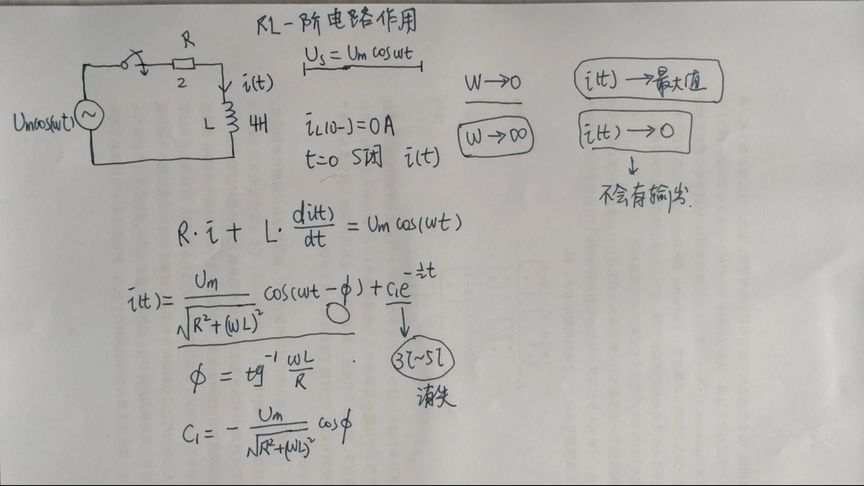 RL一阶电路作用
Us = Um cos ωt
R
2
i(t)
Um cos(ωt)
L
4H
iL(0-)=0A
t=0 S闭 i(t)
W→0
i(t)→最大值
W→∞
i(t)→0
不会有输出.
R·i + L·di(t)/dt = Um cos(ωt)
i(t)= Um/√(R²+(WL)²) cos(ωt-ϕ)+c₁e^(-½t)
3τ~5τ
消失
ϕ = tg⁻¹ ωL/R
C₁= - Um/√(R²+(WL)²) cosϕ